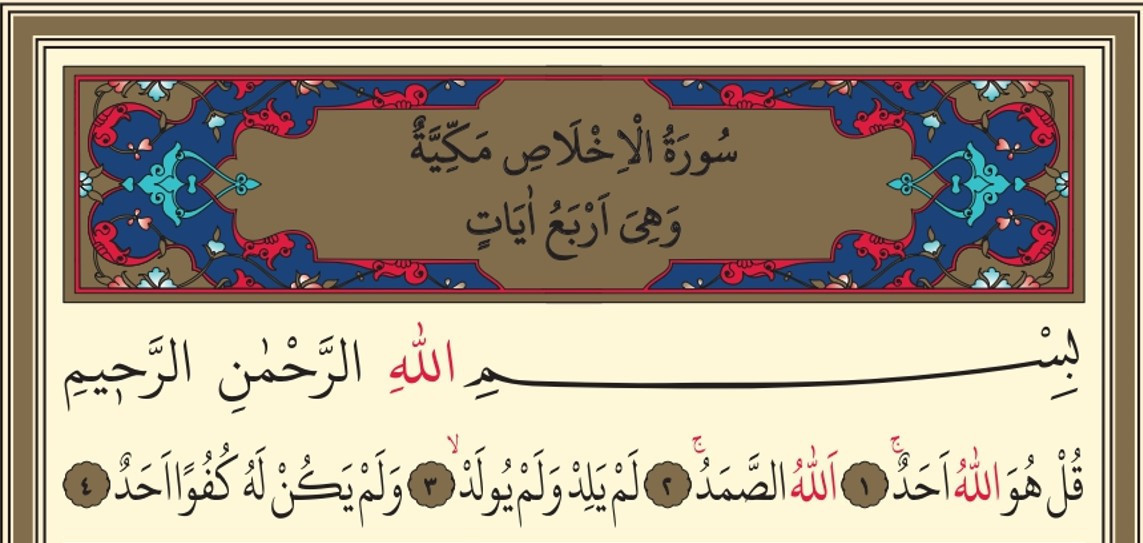 سُورَةُ الْاِخْلَاصِ مَكِّيَّةٌ
وَهِىَ اَرْبَعُ اٰيَاتٍ
بِسْمِ اللّٰهِ الرَّحْمٰنِ الرَّح۪يمِ
قُلْ هُوَ اللّٰهُ اَحَدٌۚ ﴿١﴾ اَللّٰهُ الصَّمَدُۚ ﴿٢﴾ لَمْ يَلِدْ وَلَمْ يُولَدْۙ ﴿٣﴾ وَلَمْ يَكُنْ لَهُ كُفُوًا اَحَدٌ ﴿٤﴾